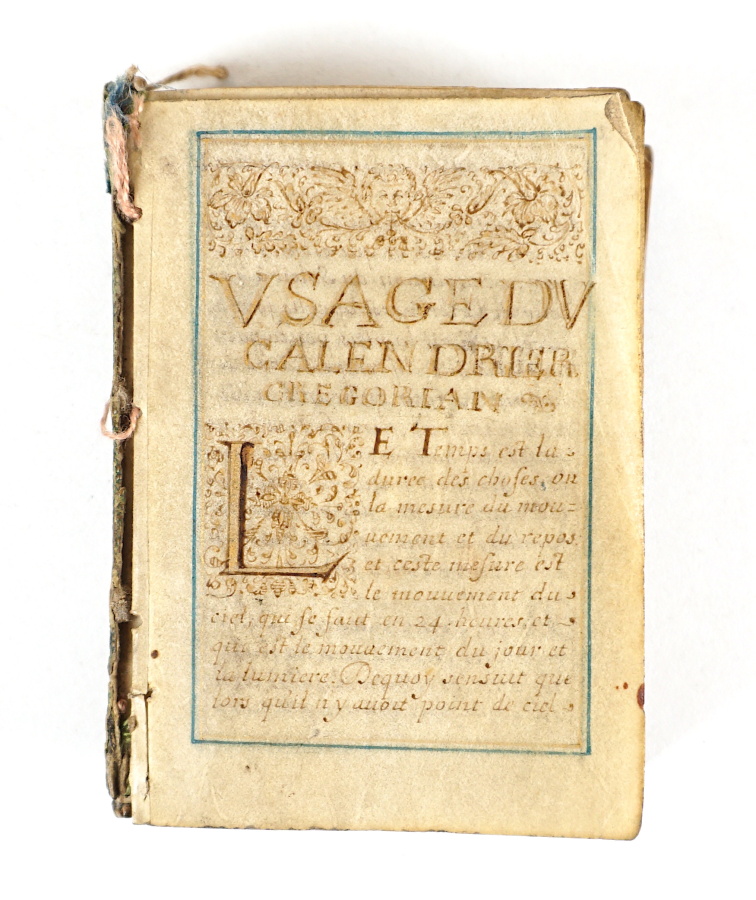 VSAGE DV
CALENDRIER
GREGORIAN
LE Temps est la
duree des choses, on
la mesure du mou=
uement et du repos,
et ceste mesure est
le mouuement du
ciel, qui se faut en 24 heures, et
que est le mouuement du jour et
la lumiere. Dequoy sensuit que
lors qu'il n'y auoit point de ciel